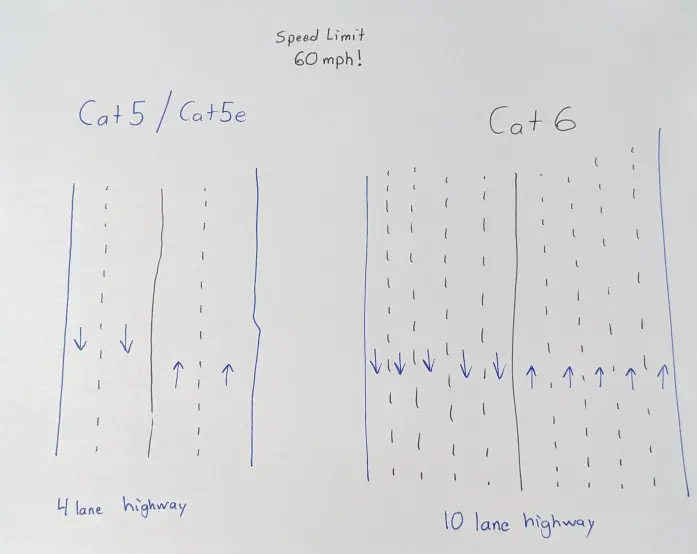 Speed Limit
60 mph!
Cat 5 / Cat5e
Cat 6
4 lane highway
10 lane highway